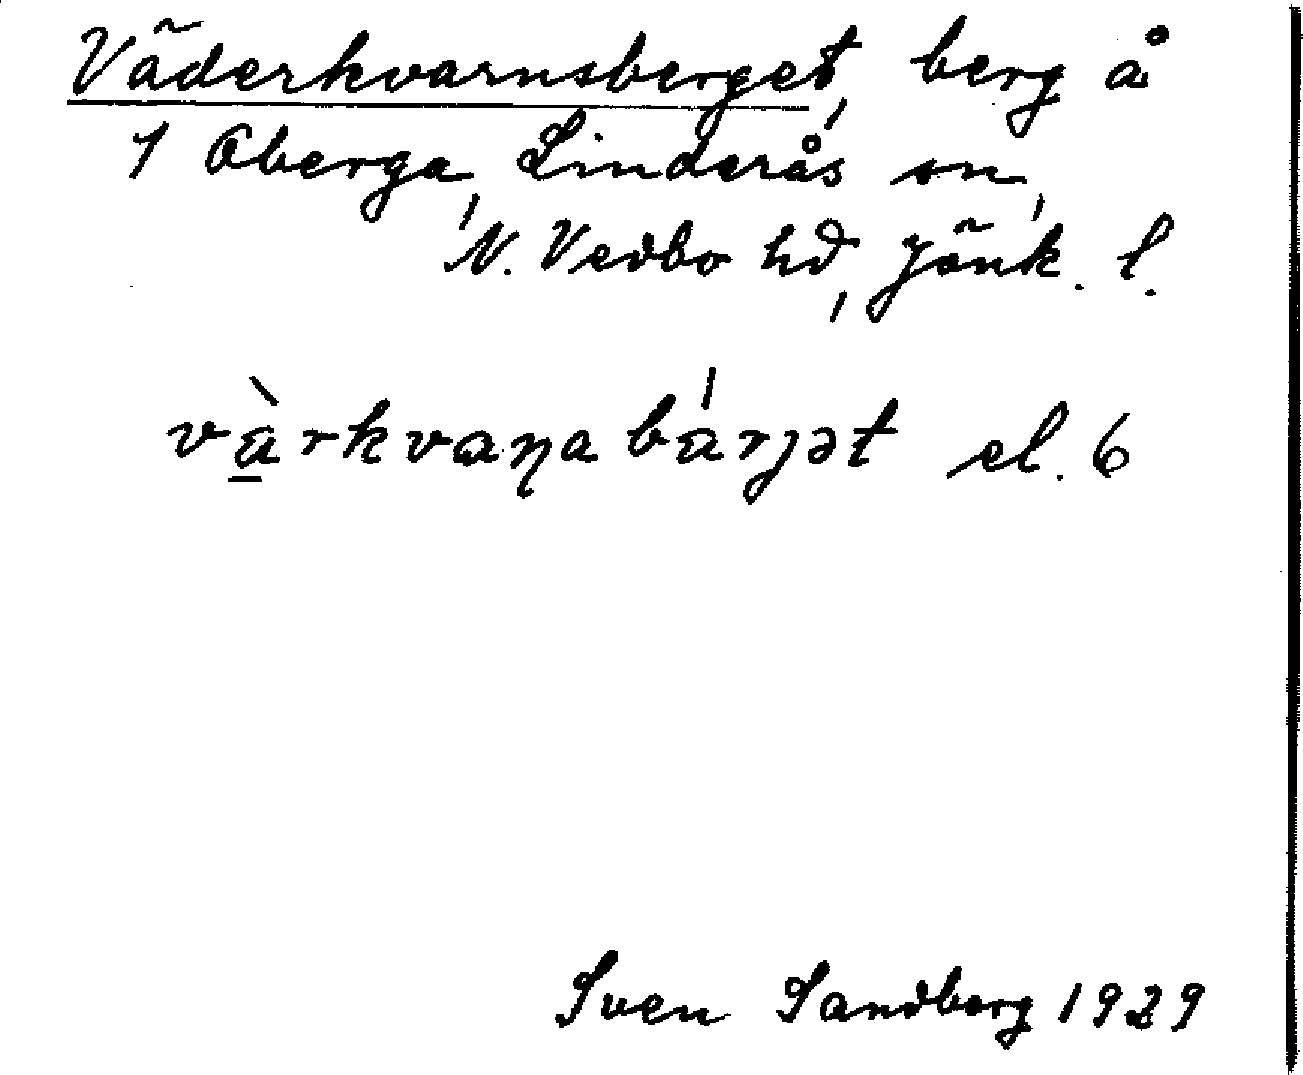 Väderkvarnsberget, berg å
1 Oberga, Linderås sn,
N. Vedbo hd, Jönk. l.
và̱rkvaꞃa bárjət el. 6
Sven Sandberg 1929